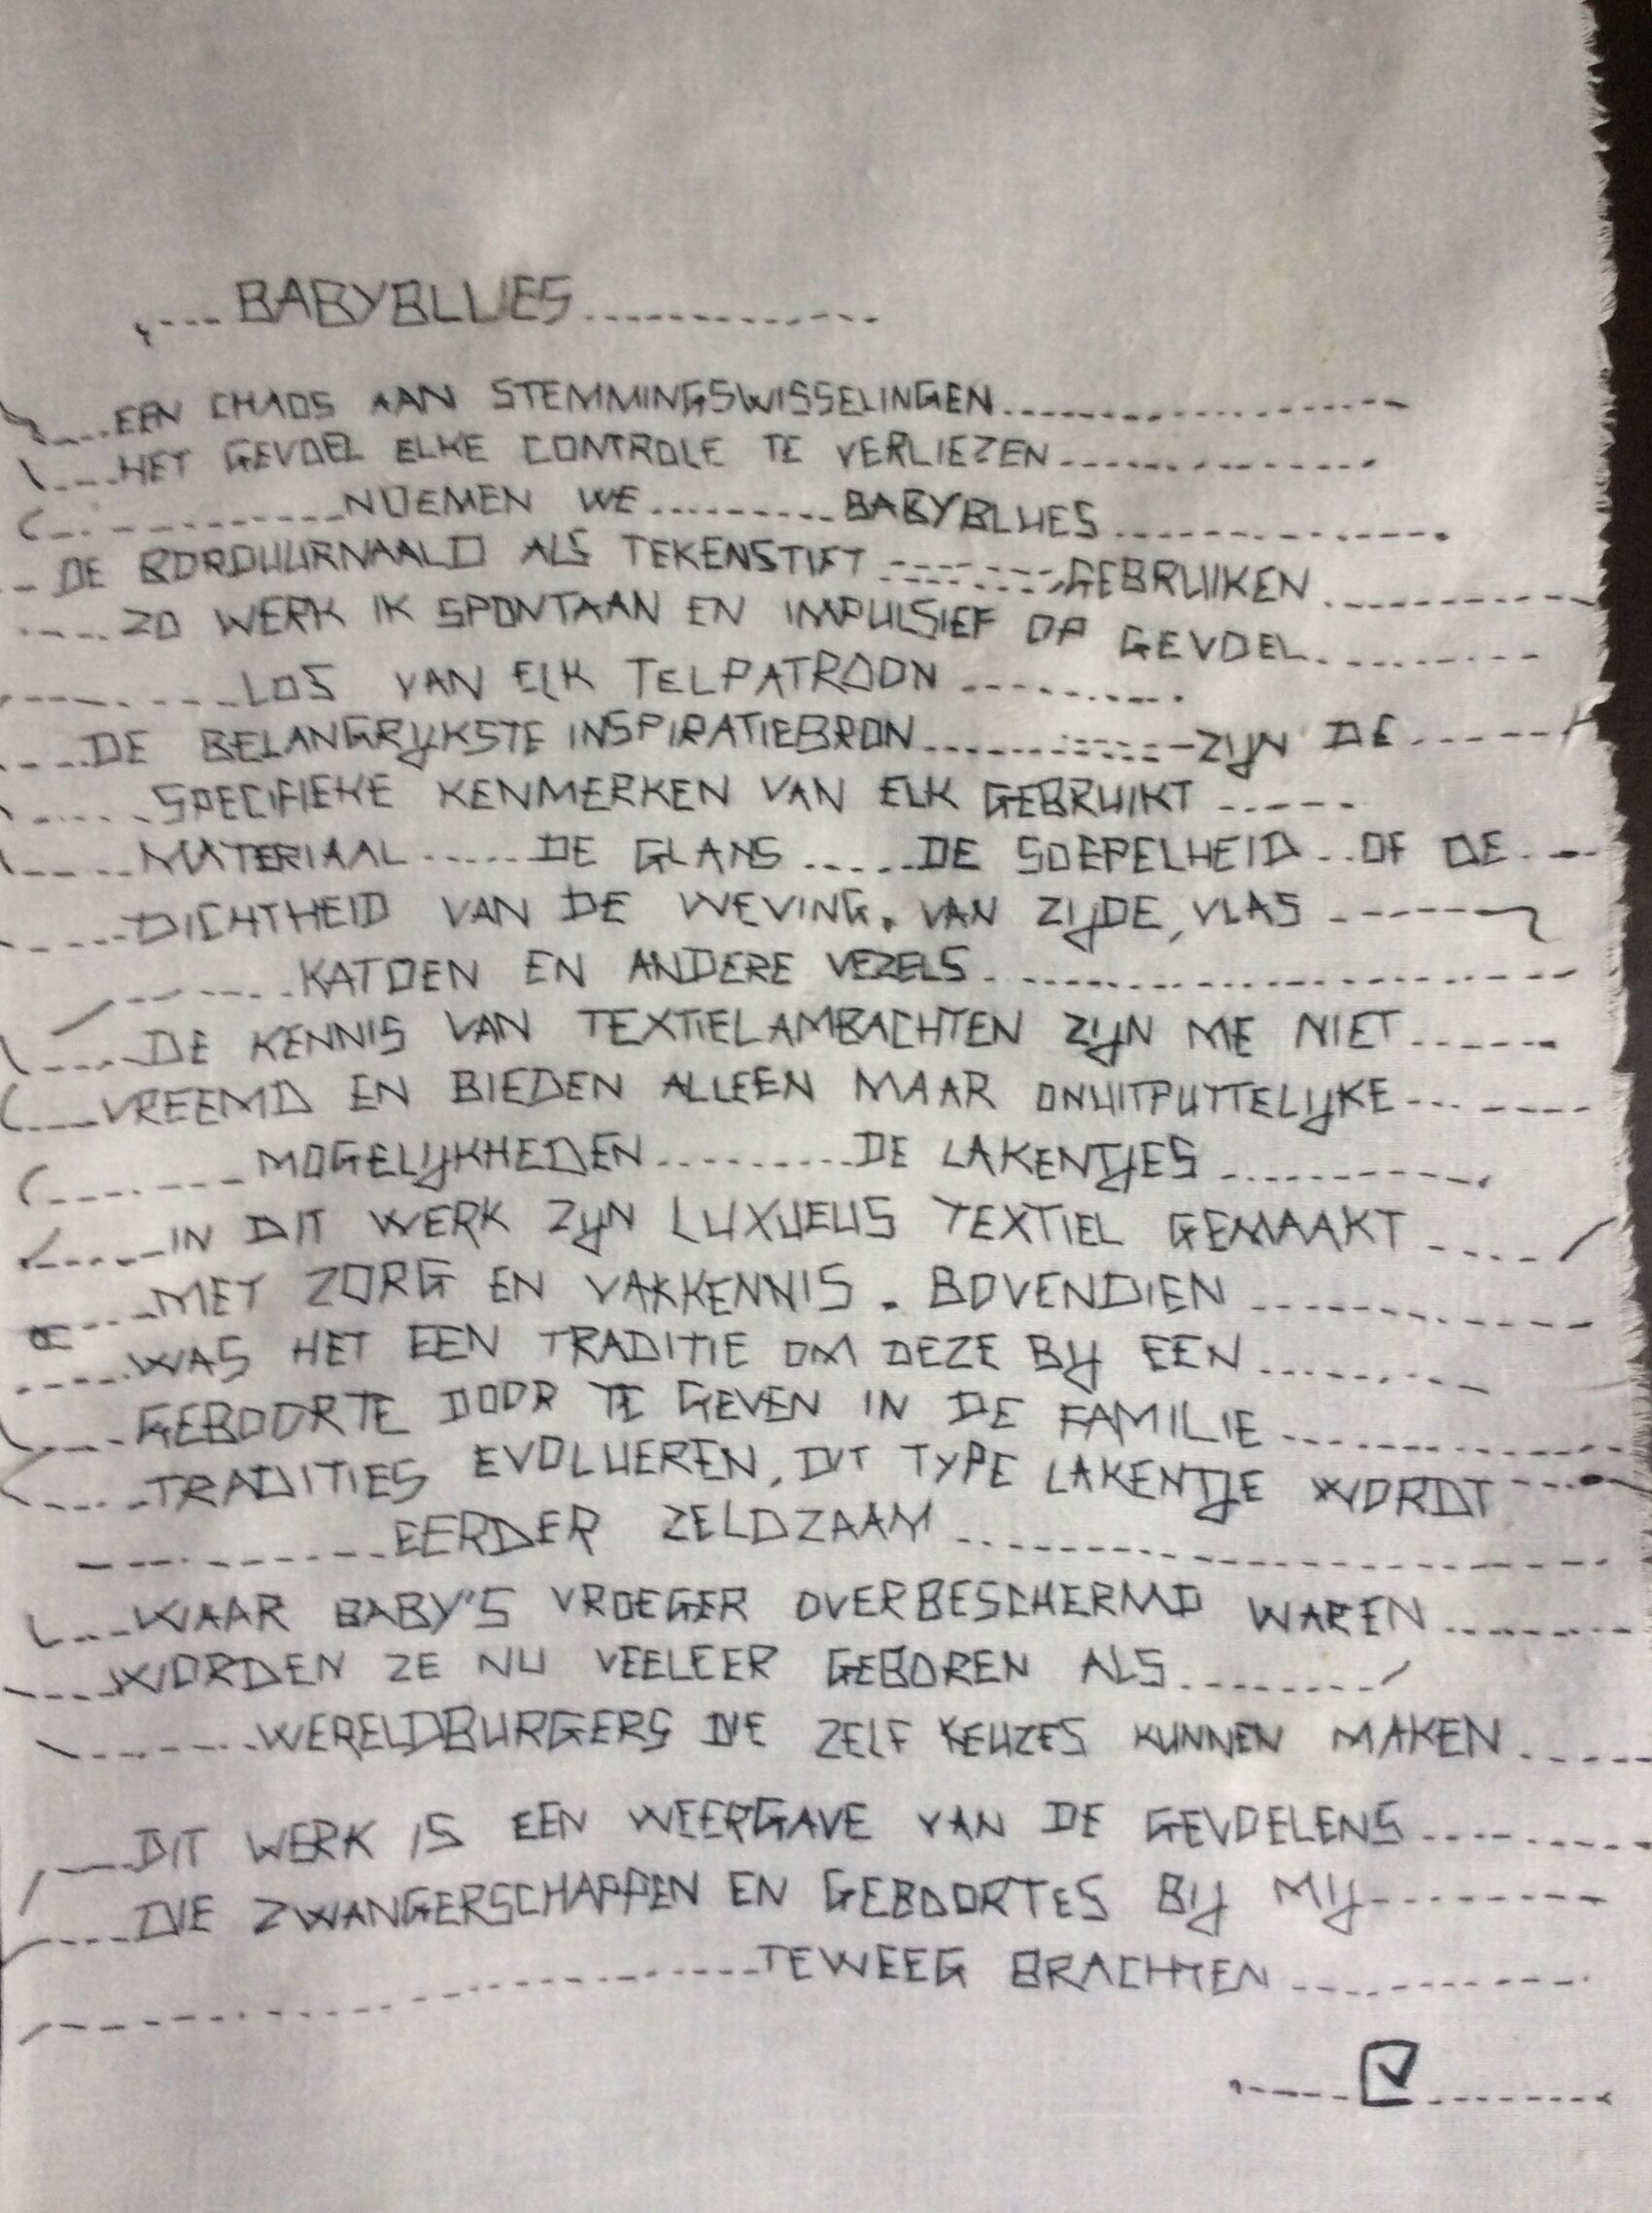 BABYBLUES
EEN CHAOS AAN STEMMINGSWISSELINGEN
HET GEVOEL ELKE CONTROLE TE VERLIEZEN
NOEMEN WE BABYBLUES
DE BORDUURNAALD ALS TEKENSTIFT GEBRUIKEN
ZO WERK IK SPONTAAN EN IMPULSIEF OP GEVOEL
LOS VAN ELK TELPATROON
DE BELANGRIJKSTE INSPIRATIEBRON ZIJN DE
SPECIFIEKE KENMERKEN VAN ELK GEBRUIKT
MATERIAAL DE GLANS DE SOEPELHEID OF DE
DICHTHEID VAN DE WEVING. VAN ZIJDE, VLAS
KATOEN EN ANDERE VEZELS
DE KENNIS VAN TEXTIELAMBACHTEN ZIJN ME NIET
VREEMD EN BIEDEN ALLEEN MAAR ONUITPUTTELIJKE
MOGELIJKHEDEN DE LAKENTJES
IN DIT WERK ZIJN LUXUEUS TEXTIEL GEMAAKT
MET ZORG EN VAKKENNIS. BOVENDIEN
WAS HET EEN TRADITIE OM DEZE BIJ EEN
GEBOORTE DOOR TE GEVEN IN DE FAMILIE
TRADITIES EVOLUEREN, DIT TYPE LAKENTJE WORDT
EERDER ZELDZAAM
WAAR BABY'S VROEGER OVERBESCHERMD WAREN
WORDEN ZE NU VEELEER GEBOREN ALS
WERELDBURGERS DIE ZELF KEUZES KUNNEN MAKEN
DIT WERK IS EEN WEERGAVE VAN DE GEVOELENS
DIE ZWANGERSCHAPPEN EN GEBOORTES BIJ MIJ
TEWEEG BRACHTEN